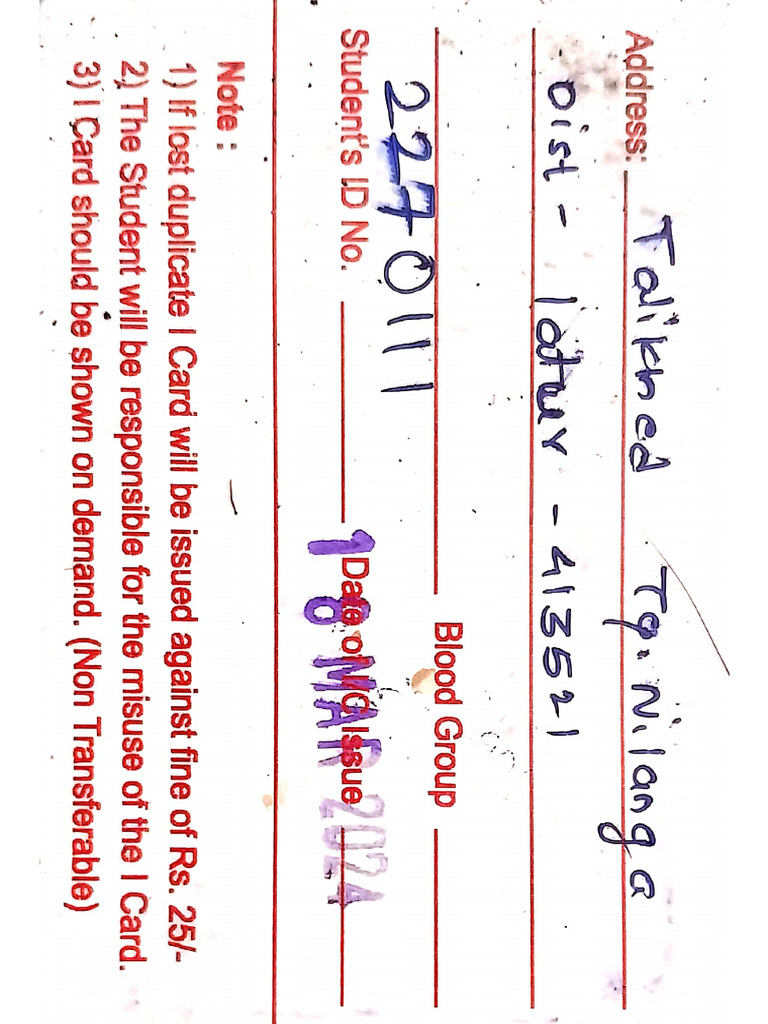 Address: Talikhed Tq. Nilanga
Dist - latur - 413521
2270111 Blood Group
Student's ID No. Date of IC Issue
18 MAR 2024
Note :
1) If lost duplicate I Card will be issued against fine of Rs. 25/-
2) The Student will be responsible for the misuse of the I Card.
3) I Card should be shown on demand. (Non Transferable)